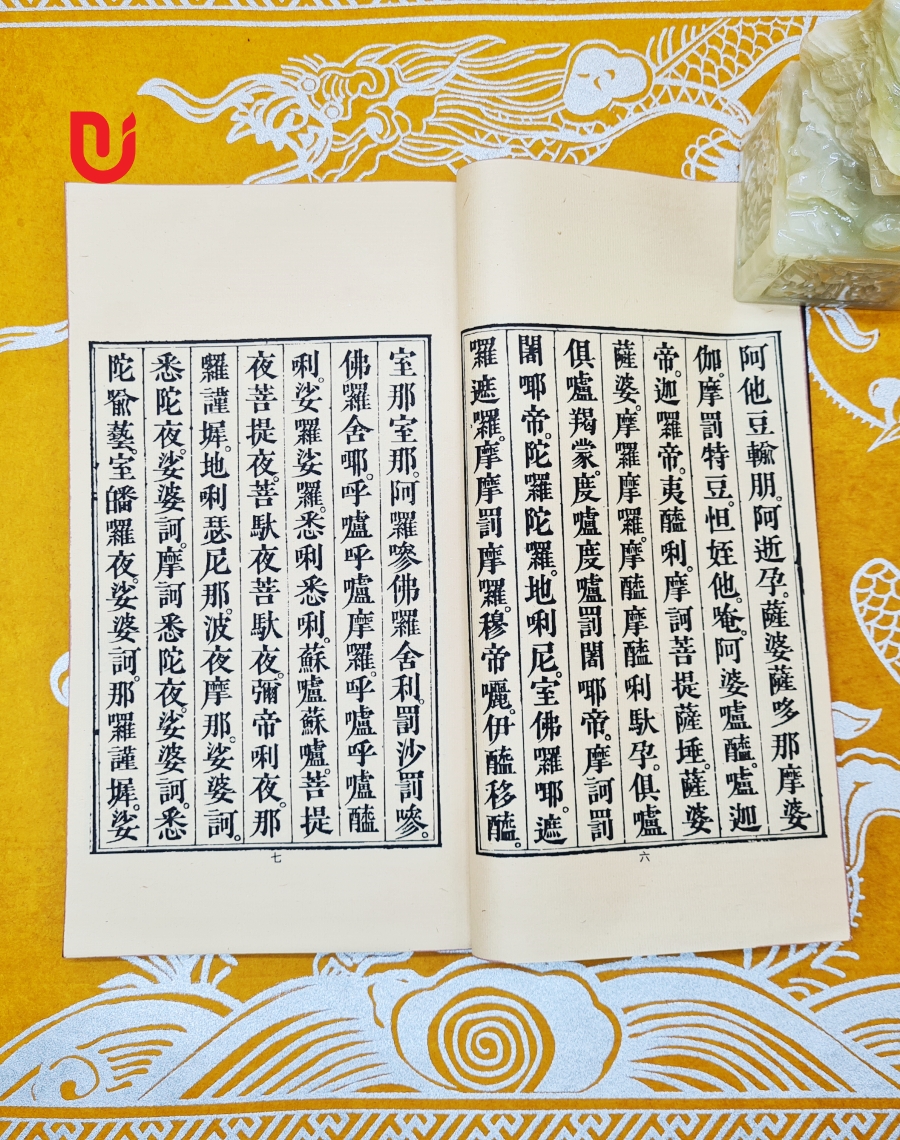 阿他豆輸朋。阿逝孕。薩婆薩哆那摩婆
伽。摩罰特豆。怛姪他。唵。阿婆盧醯。盧迦
帝。迦羅帝。夷醯唎。摩訶菩提薩埵。薩婆
薩婆。摩囉摩囉。摩醯摩醯唎馱孕。俱盧
俱盧羯蒙。度盧度盧罰闍耶帝。摩訶罰
闍耶帝。陀羅陀羅。地唎尼。室佛囉耶。遮
囉遮囉。摩摩罰摩囉。穆帝囇。伊醯移醯。
六
室那室那。阿囉嘇佛囉舍利。罰沙罰嘇。
佛羅舍耶。呼嚧呼嚧摩羅。呼嚧呼嚧醯
唎。娑囉娑囉。悉唎悉唎。蘇嚧蘇嚧。菩提
夜菩提夜。菩馱夜菩馱夜。彌帝唎夜。那
囉謹墀。地唎瑟尼那。波夜摩那。娑婆訶。
悉陀夜。娑婆訶。摩訶悉陀夜。娑婆訶。悉
陀喻藝。室皤囉夜。娑婆訶。那囉謹墀。娑
七